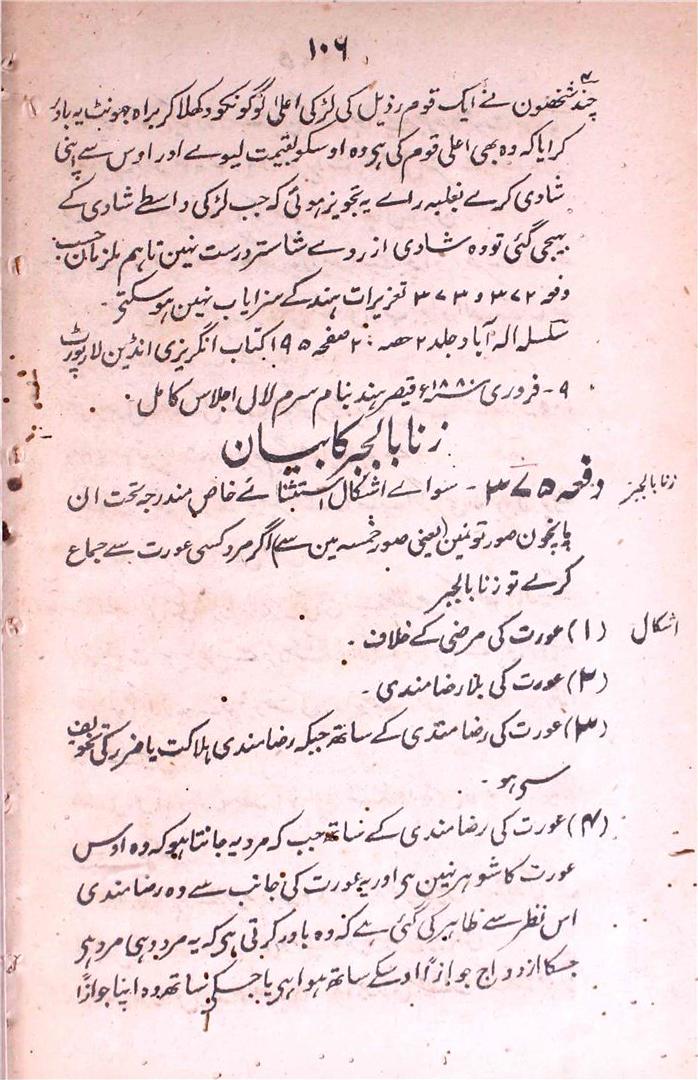 ۱۰۶
چند شخصون نے ایک قوم رذیل کی لڑکی اعلیٰ لوگونکو دکھلاکر براہ جھونٹ یہ باور
کرایا کہ وہ بھی اعلی قوم کی ہی وہ اوسکو بقیمت لیوے اور اوس سے اپنی
شادی کرے بغلبہ راے یہ تجویز ہوئی کہ جب لڑکی واسطے شادی کے
بیچی گئی تو وہ شادی از روے شاستر درست نہین تاہم ملزمان حسب
دفعہ ۳۷۲ و ۳۷۳ تعزیرات ہند کے سزایاب نہین ہوسکتی۔
سلسلہ الہ آباد جلد ۲ حصہ ۲ صفحہ ۱۹۵ کتاب انگریزی انڈین لا رپورٹ
۹۔ فروری سنہ ۱۸۸۰ء قیصر ہند بنام سرم لال اجلاس کامل۔
زنا بالجبر کا بیان
زنا بالجبر دفعہ ۳۷۵۔ سواے اشکال استثنائے خاص مندرجہ تحت ان
پانچون صورتونمین (یعنی صور خمسہ مین سے) اگر مرد کسی عورت سے جماع
کرے تو زنا بالجبر
اشکال (۱) عورت کی مرضی کے خلاف۔
(۲) عورت کی بلا رضامندی۔
(۳) عورت کی رضامندی کے ساتھ جبکہ رضامندی ہلاکت یا ضرر کی تخویف
سی ہو۔
(۴) عورت کی رضامندی کے ساتھ جب کہ مرد یہ جانتا ہو کہ وہ اوس
عورت کا شوہر نہین ہی اور یہ عورت کی جانب سے وہ رضامندی
اس نظر سے ظاہر کی گئی ہے کہ وہ باور کرتی ہی کہ یہ مرد وہی مرد ہی
جسکا ازدواج جوازاً اوسکے ساتھ ہوا ہی یا جسکی ساتھ وہ اپنا جوازاً